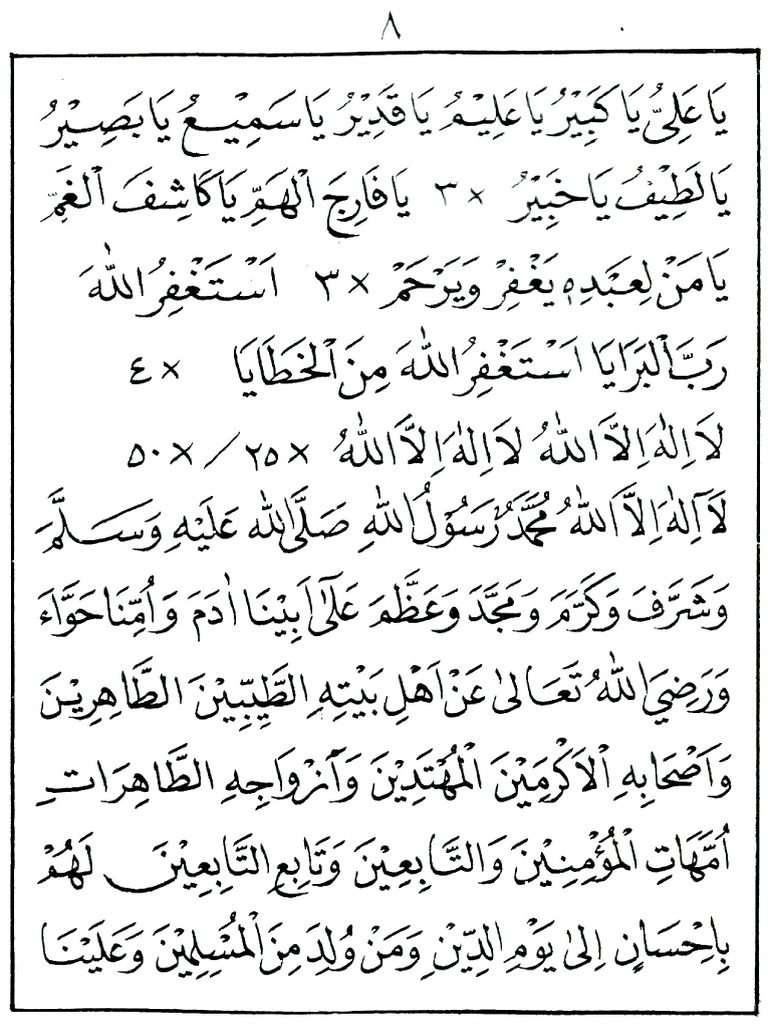 ٨
يَا عَلِيُّ يَا كَبِيْرُ يَا عَلِيْمُ يَا قَدِيْرُ يَا سَمِيْعُ يَا بَصِيْرُ
يَا لَطِيْفُ يَا خَبِيْرُ ×٣ يَا فَارِجَ الْهَمِّ يَا كَاشِفَ الْغَمِّ
يَا مَنْ لِعَبْدِهِ يَغْفِرْ وَيَرْحَمْ ×٣ اَسْتَغْفِرُ اللّٰهَ
رَبَّ الْبَرَايَا اَسْتَغْفِرُ اللّٰهَ مِنَ الْخَطَايَا ×٤
لَا اِلٰهَ اِلَّا اللّٰهُ لَا اِلٰهَ اِلَّا اللّٰهُ ×٢٥/×٥٠
لَآ اِلٰهَ اِلَّا اللّٰهُ مُحَمَّدٌ رَسُوْلُ اللّٰهِ صَلَّى اللّٰهُ عَلَيْهِ وَسَلَّمَ
وَشَرَّفَ وَكَرَّمَ وَمَجَّدَ وَعَظَّمَ عَلَىٰٓ اَبِيْنَا اٰدَمَ وَاُمِّنَا حَوَّاءَ
وَرَضِيَ اللّٰهُ تَعَالٰى عَنْ اَهْلِ بَيْتِهِ الطَّيِّبِيْنَ الطَّاهِرِيْنَ
وَاَصْحَابِهِ الْاَكْرَمِيْنَ الْمُهْتَدِيْنَ وَاَزْوَاجِهِ الطَّاهِرَاتِ
اُمَّهَاتِ الْمُؤْمِنِيْنَ وَالتَّابِعِيْنَ وَتَابِعِ التَّابِعِيْنَ لَهُمْ
بِاِحْسَانٍ اِلٰى يَوْمِ الدِّيْنِ وَمَنْ وُلِدَ مِنَ الْمُسْلِمِيْنَ وَعَلَيْنَا